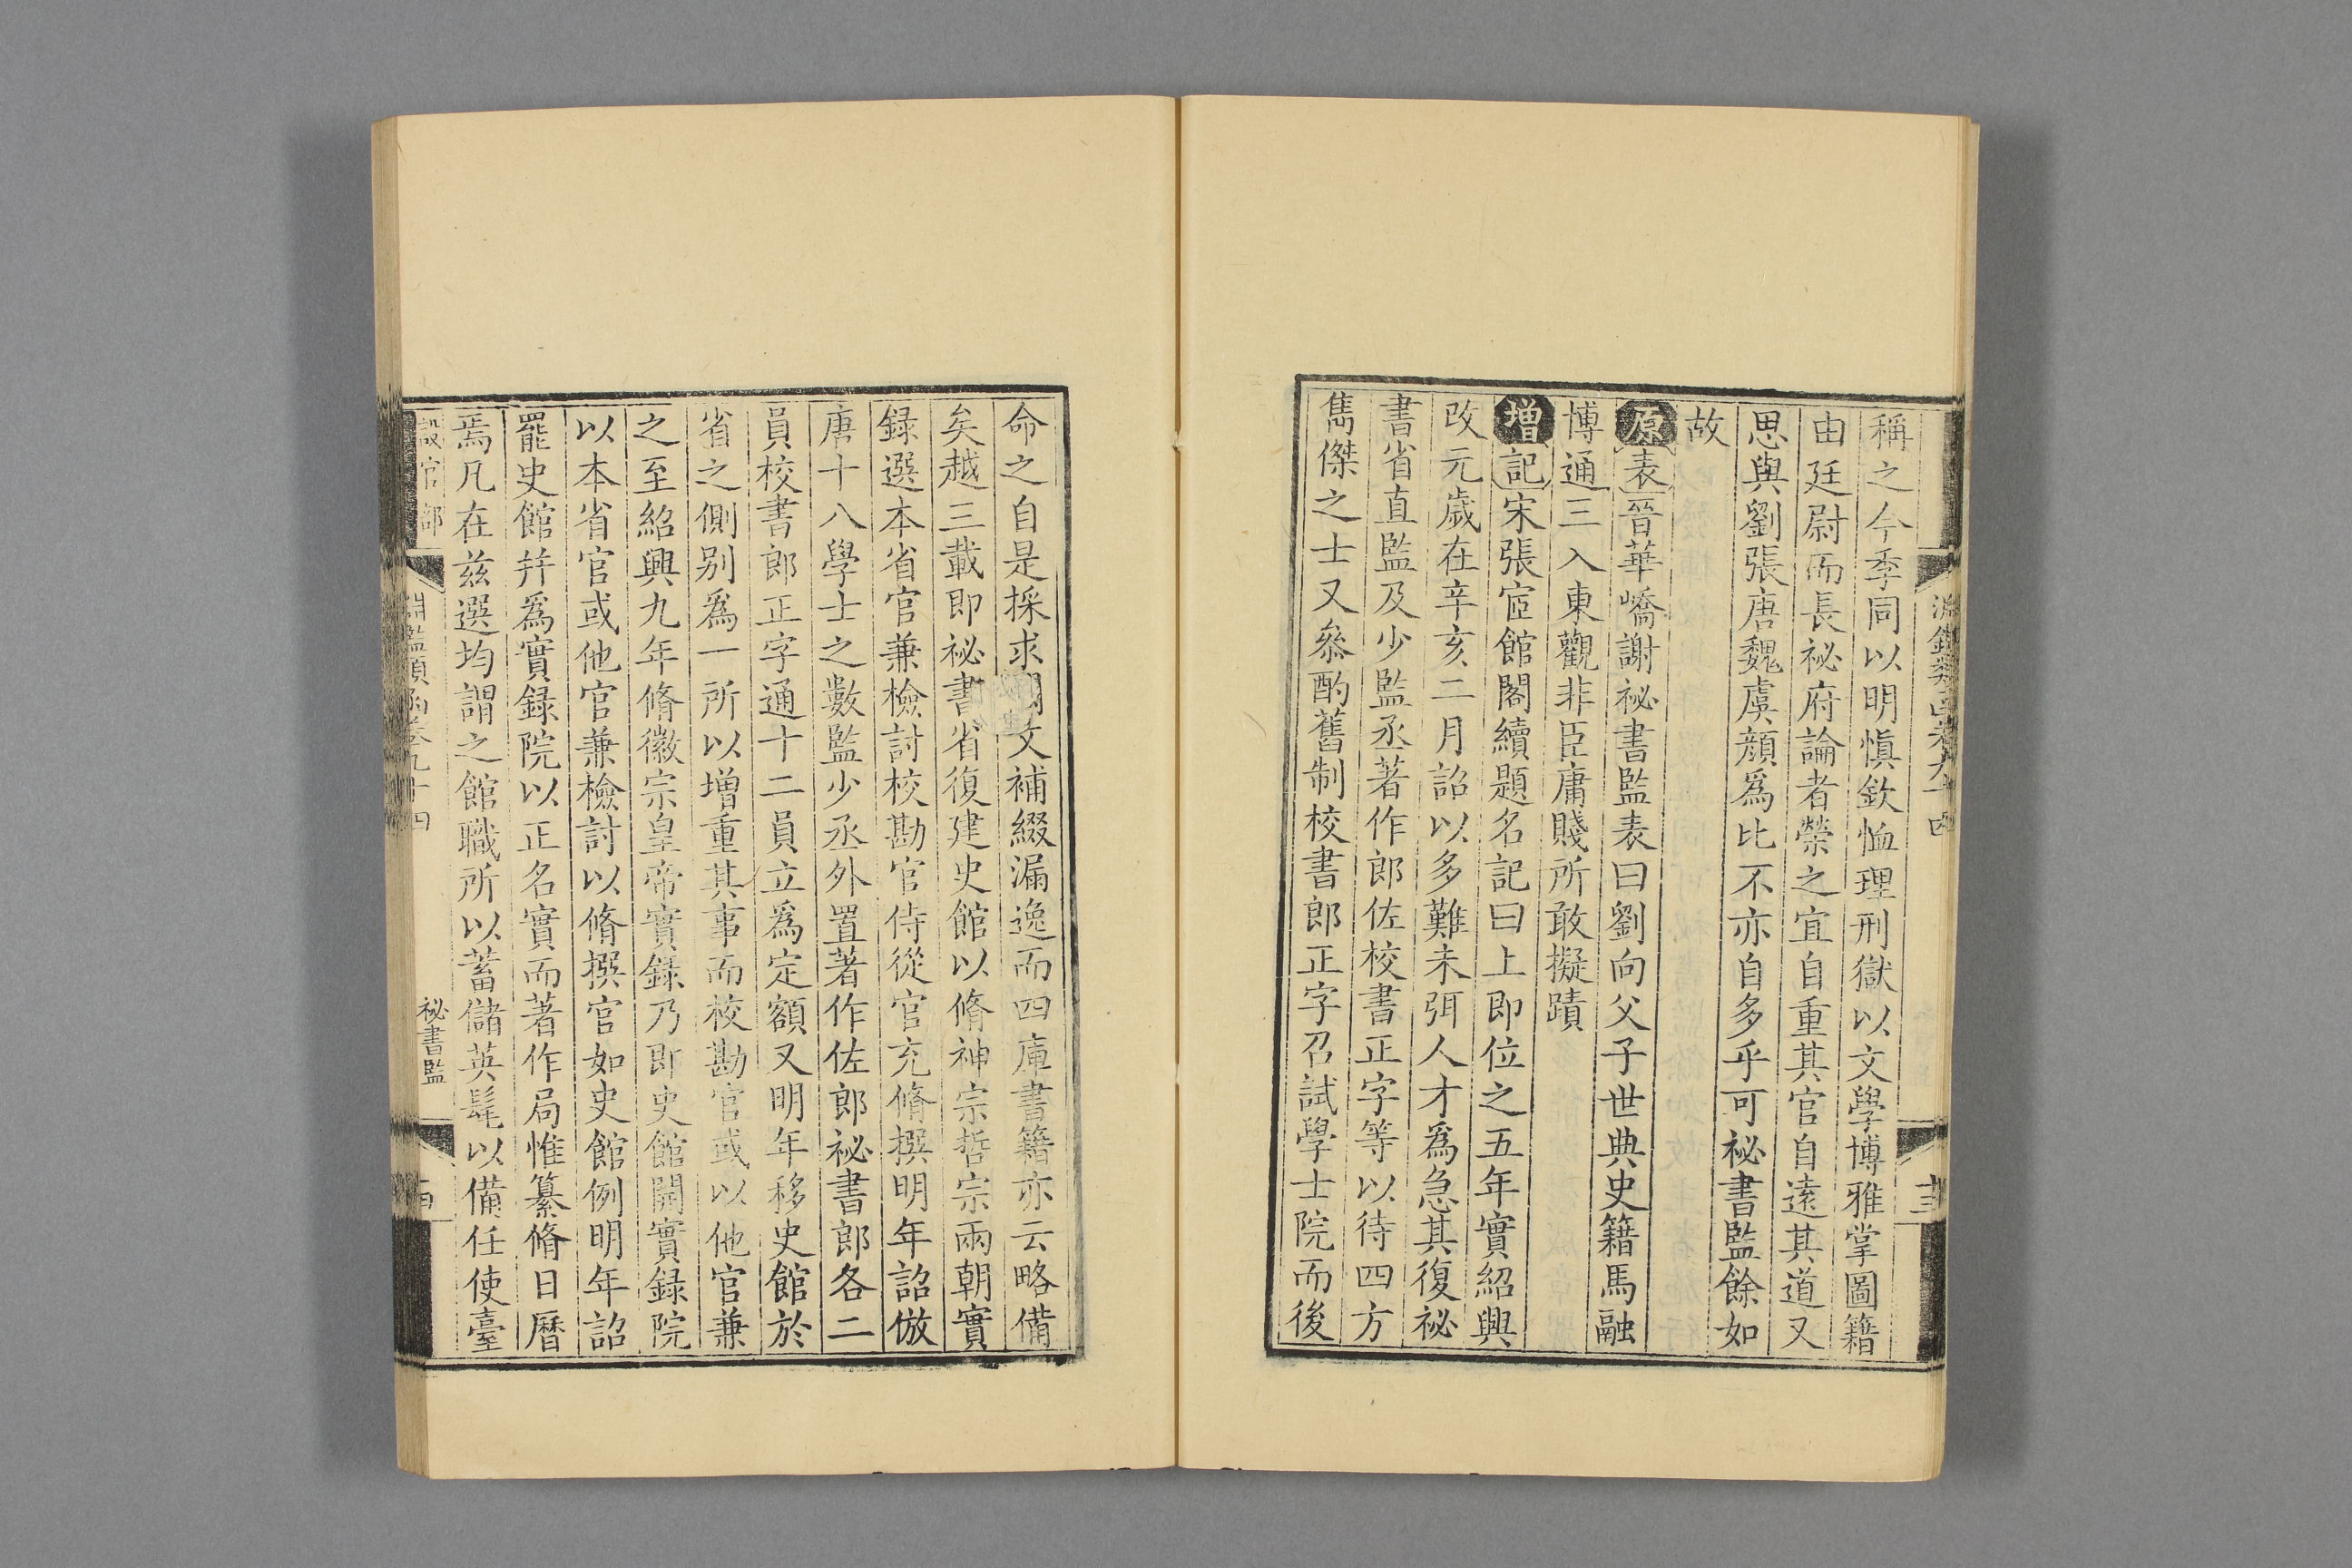 稱之今季同以明愼欽恤理刑獄以文學博雅掌圖籍
由廷尉而長祕府論者榮之宜自重其官自遠其道又
思與劉張唐魏虞顔爲比不亦自多乎可祕書監餘如
故
原表晉華嶠謝祕書監表曰劉向父子世典史籍馬融
博通三入東觀非臣庸賤所敢擬蹟
增記宋張宧館閣續題名記曰上即位之五年實紹興
改元歲在辛亥二月詔以多難未弭人才爲急其復祕
書省直監及少監丞著作郎佐校書正字等以待四方
雋傑之士又叅酌舊制校書郎正字召試學士院而後
命之自是採求闕文補綴漏逸而四庫書籍亦云略備
矣越三載即祕書省復建史館以脩神宗哲宗兩朝實
録選本省官兼檢討校勘官侍從官充脩撰明年詔倣
唐十八學士之數監少丞外置著作佐郎祕書郎各二
員校書郎正字通十二員立爲定額又明年移史館於
省之側别爲一所以增重其事而校勘官或以他官兼
之至紹興九年脩徽宗皇帝實録乃即史館開實録院
以本省官或他官兼檢討以脩撰官如史館例明年詔
罷史館并爲實録院以正名實而著作局惟纂脩日曆
焉凡在兹選均謂之館職所以蓄儲英髦以備任使臺
設官部 淵鑑類函卷九十四 祕書監